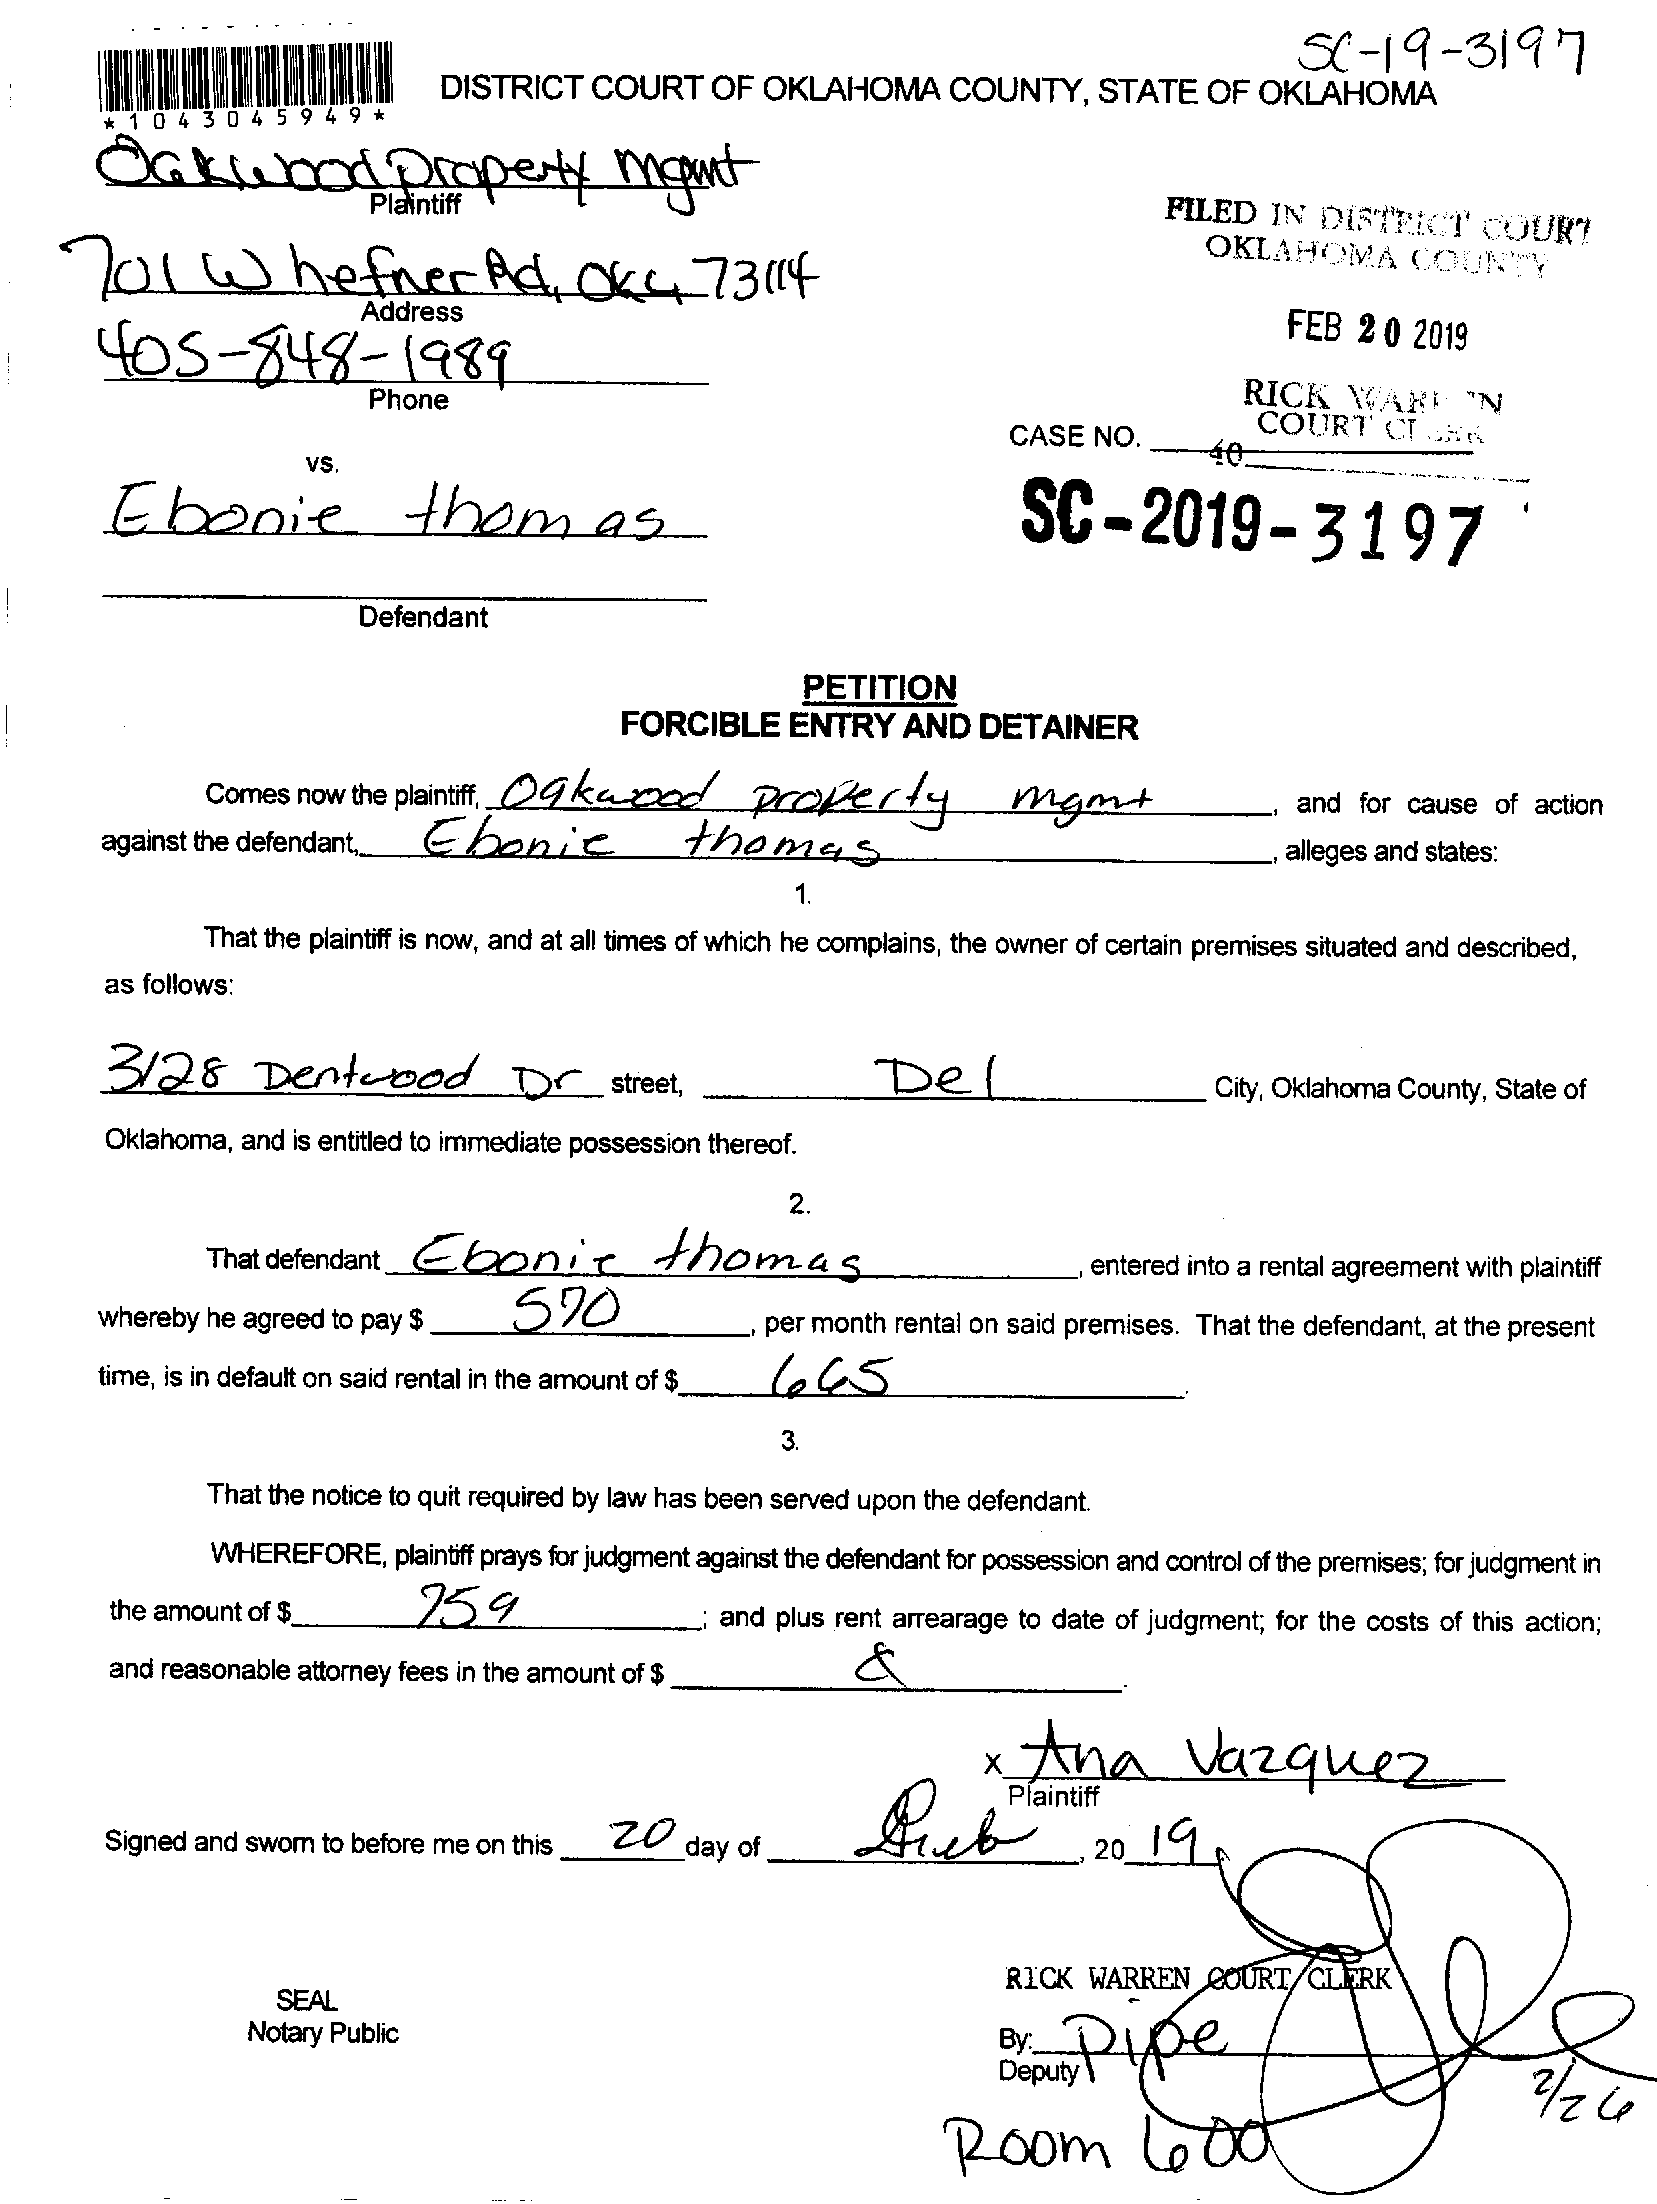 SC-19-3197
DISTRICT COURT OF OKLAHOMA COUNTY, STATE OF OKLAHOMA
*1043045949*
Oakwood property mgmt
Plaintiff
701 W hefner Rd, OKC 73114
Address
405-848-1989
Phone
FILED IN DISTRICT COURT
OKLAHOMA COUNTY
FEB 20 2019
RICK WARREN
COURT CLERK
CASE NO.
40
vs.
Ebonie thomas
SC-2019-3197
Defendant
PETITION
FORCIBLE ENTRY AND DETAINER
Comes now the plaintiff, Oakwood property mgmt, and for cause of action
against the defendant, Ebonie thomas, alleges and states:
1.
That the plaintiff is now, and at all times of which he complains, the owner of certain premises situated and described,
as follows:
3128 Dentwood Dr street, Del City, Oklahoma County, State of
Oklahoma, and is entitled to immediate possession thereof.
2.
That defendant Ebonie thomas, entered into a rental agreement with plaintiff
whereby he agreed to pay $ 570, per month rental on said premises. That the defendant, at the present
time, is in default on said rental in the amount of $ 665.
3.
That the notice to quit required by law has been served upon the defendant.
WHEREFORE, plaintiff prays for judgment against the defendant for possession and control of the premises; for judgment in
the amount of $ 759; and plus rent arrearage to date of judgment; for the costs of this action;
and reasonable attorney fees in the amount of $
x Ana Vazquez
Plaintiff
Signed and sworn to before me on this 20 day of Feb, 2019
RICK WARREN COURT CLERK
SEAL
Notary Public
By: Pipe
Deputy
2/26
Room 600